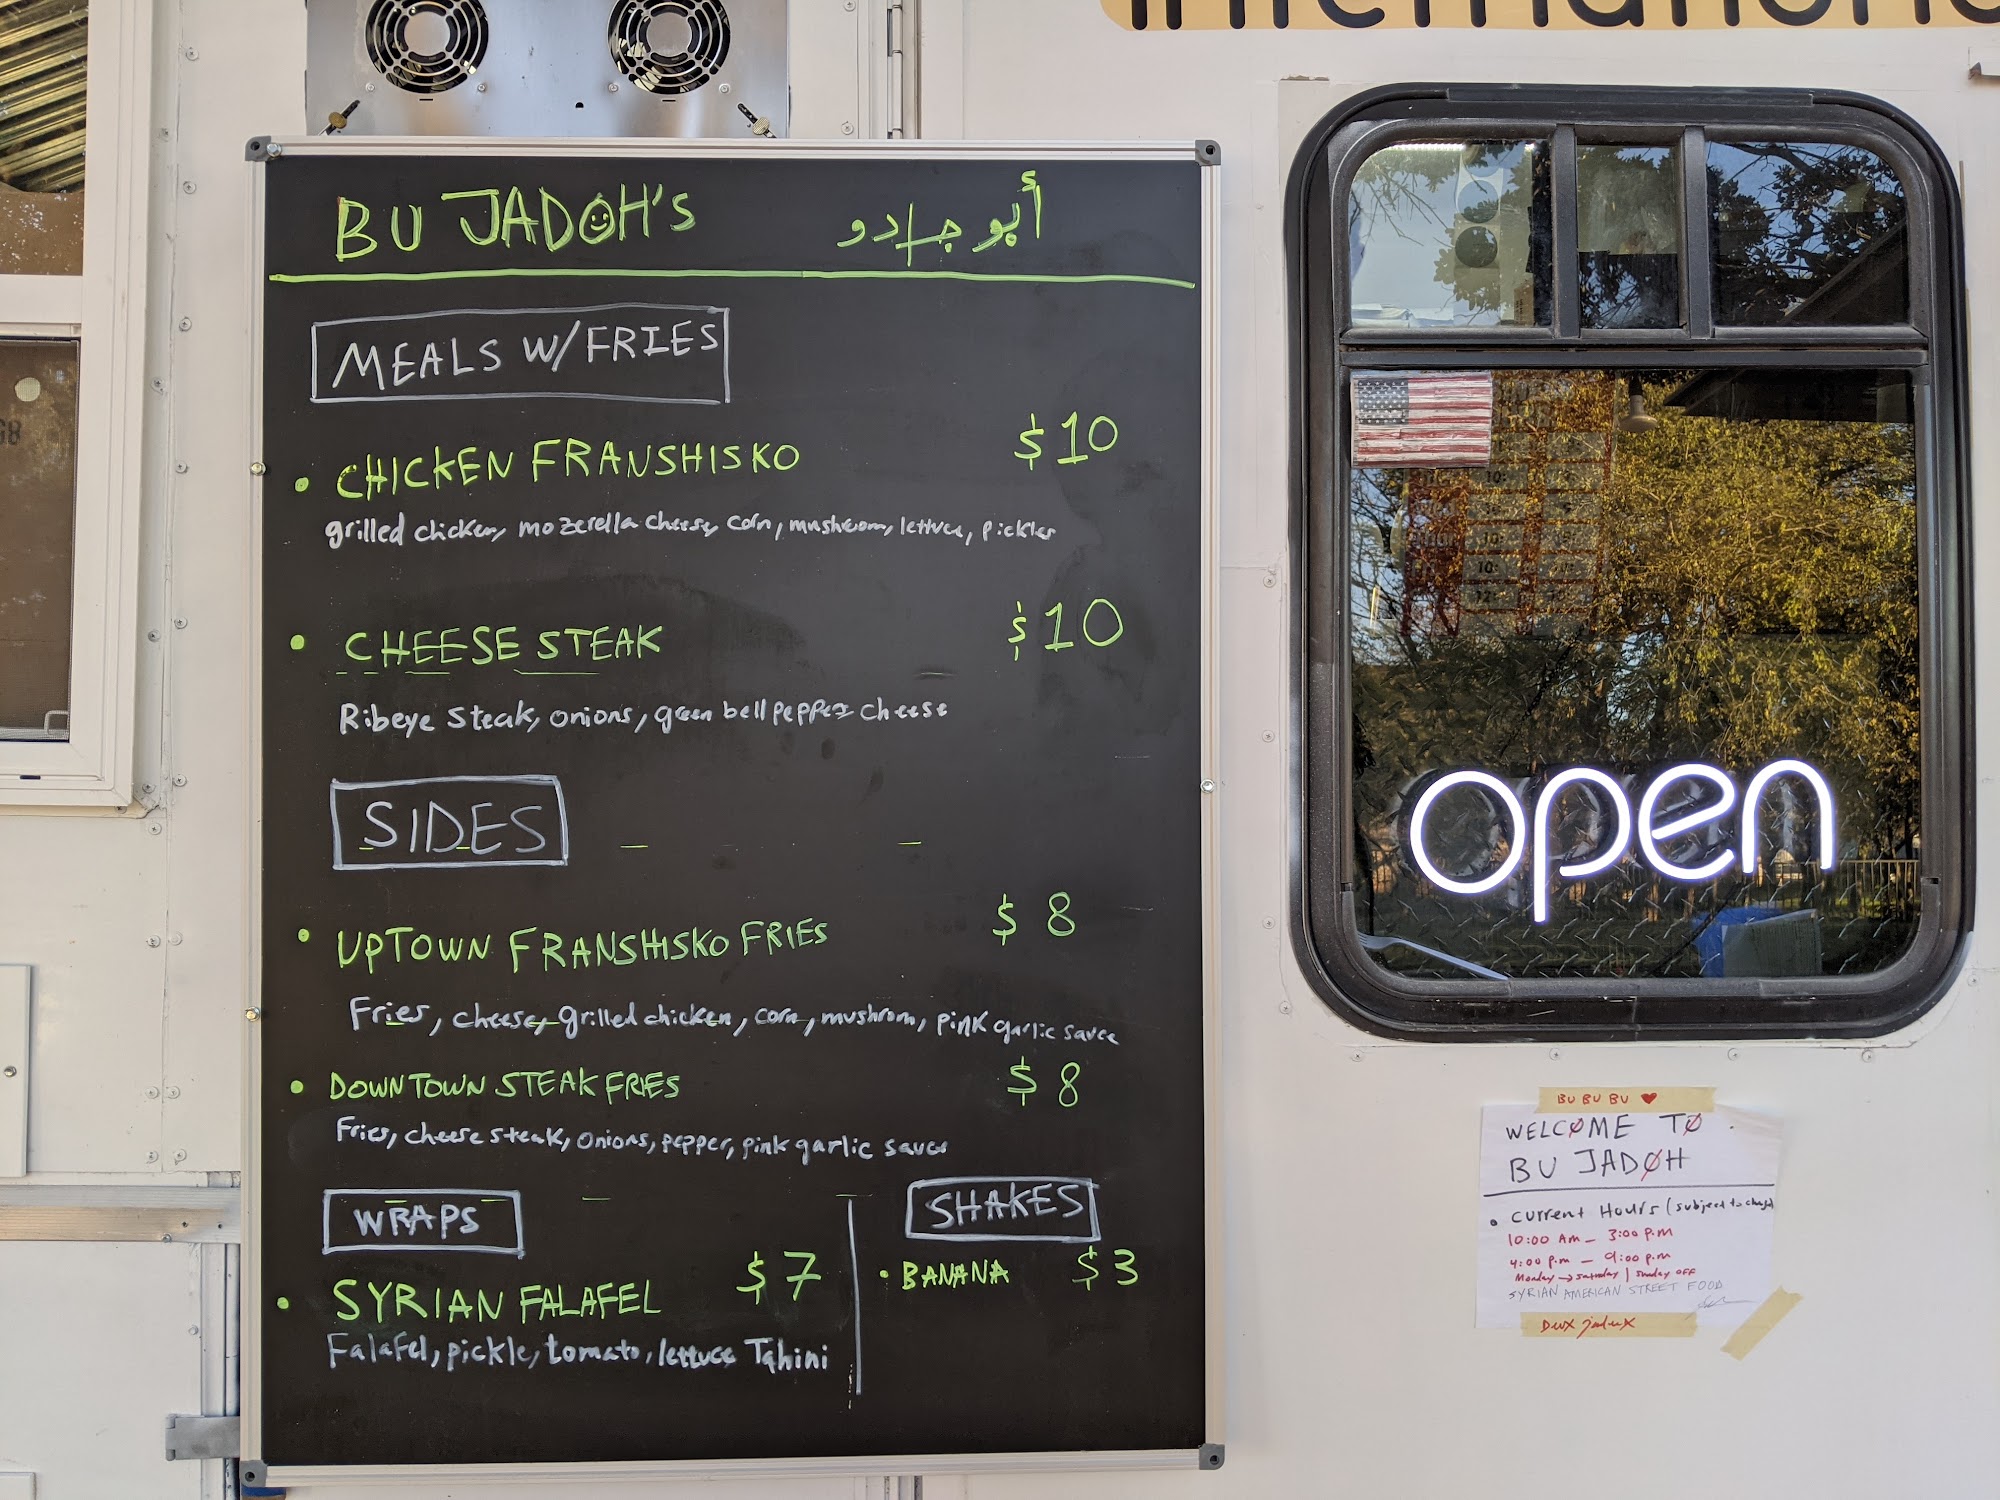 BU JADOH'S أبو جادو
MEALS W/FRIES
• CHICKEN FRANSHISKO $10
grilled chicken, mozerella cheese, corn, mushroom, lettuce, pickles
• CHEESE STEAK $10
Ribeye steak, onions, green bell pepper cheese
SIDES
• UPTOWN FRANSHISKO FRIES $8
Fries, cheese, grilled chicken, corn, mushrom, pink garlic sauce
• DOWNTOWN STEAK FRIES $8
Fries, cheese steak, onions, pepper, pink garlic sauce
WRAPS
• SYRIAN FALAFEL $7
Falafel, pickle, tomato, lettuce Tahini
SHAKES
• BANANA $3
open
BU BU BU ♥
WELCOME TO
BU JADOH
• Current Hours (subject to change)
10:00 AM - 3:00 P.M
4:00 P.M - 9:00 P.M
Monday → saturday | Sunday OFF
SYRIAN AMERICAN STREET FOOD